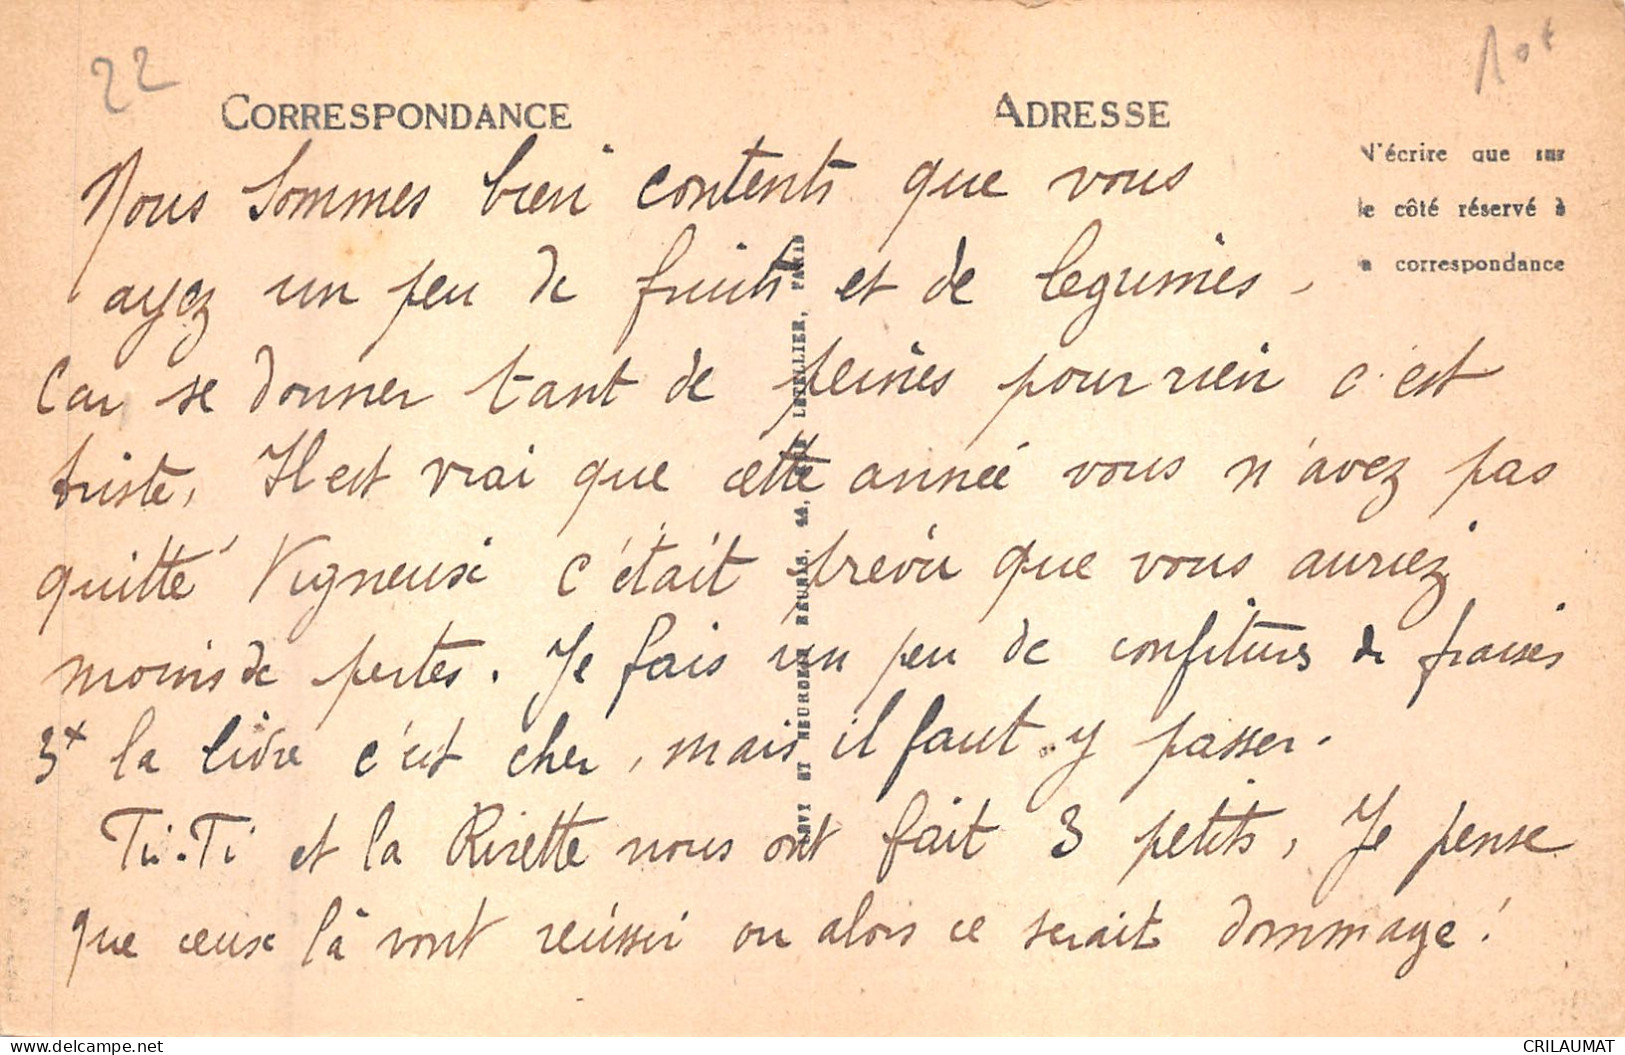 22
10€
CORRESPONDANCE
ADRESSE
N'écrire que sur
le côté réservé à
la correspondance
Nous sommes bien contents que vous
ayez un peu de fruits et de legumes.
Car se donner tant de peines pour rien c'est
triste, Il est vrai que cette année vous n'avez pas
quitté Vigneusi c'était prévu que vous auriez
moins de pertes. Je fais un peu de confitures de fraises
3x la livre c'est cher, mais il faut y passer.
Ti-Ti et la Risette nous ont fait 3 petits, Je pense
que ceux là vont réussir ou alors ce serait dommage !
LEVY ET NEURDEIN RÉUNIS, 44, RUE LETELLIER, PARIS
www.delcampe.net
CRILAUMAT